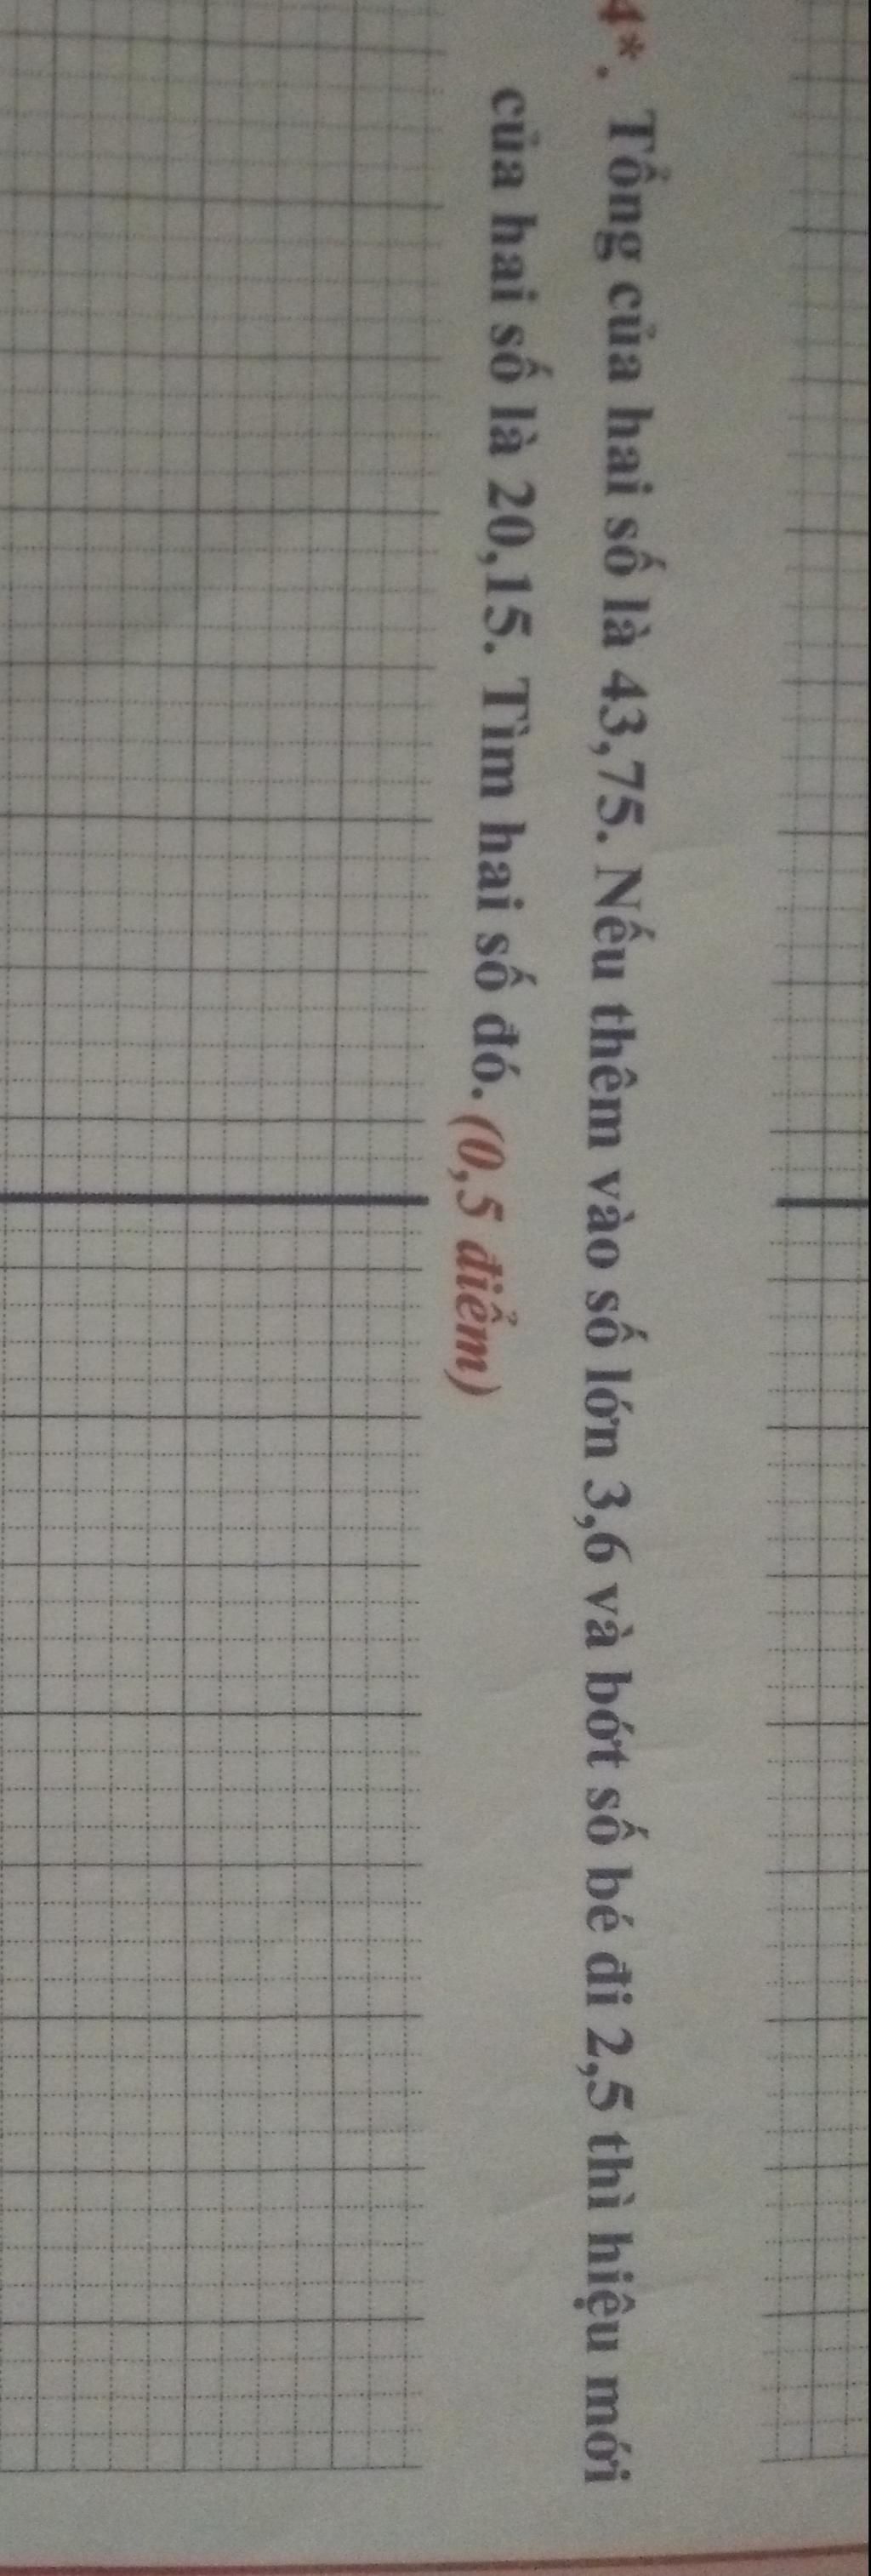 4*. Tổng của hai số là 43,75. Nếu thêm vào số lớn 3,6 và bớt số bé đi 2,5 thì hiệu mới
của hai số là 20,15. Tìm hai số đó. (0,5 điểm)